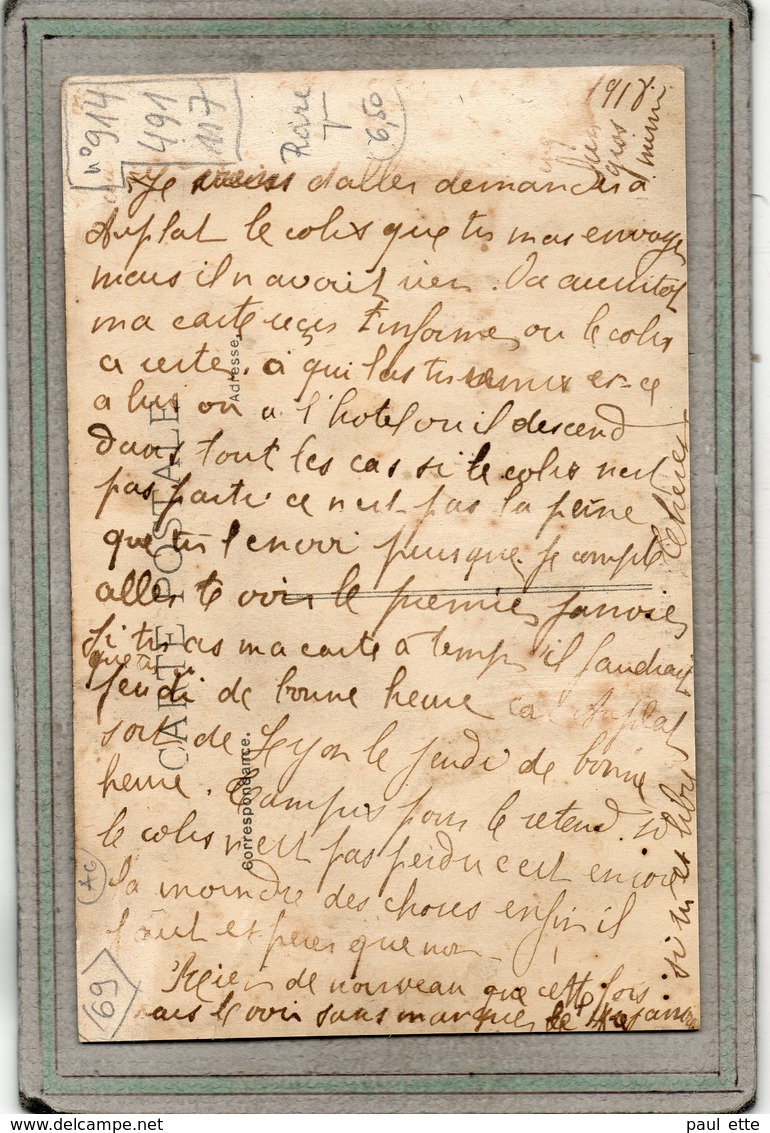 n° 914
491
117
Rare
6,50
1918
gros
mimi
Je viens d aller demander a
Auplat le colis que tu mas envoye
mais il n avait rien. Va aussitot
ma carte reçus t informe, ou le colis
a reste. a qui las tu remis es-ce
a lui ou a l'hotel ou il descend
dans tout les cas si le colis nest
pas parti ce nest pas la peine
que tu l envoi puisque je compte
aller te voir le premier Janvier
Si tu as ma carte à temps il faudrait
que tu
Jeudi de bonne heure car Auplat
sort de Lyon le jeudi de bonne
heure. tampis pour le retend. si
le colis nest pas perdu c est encore
la moindre des choses enfin il
faut esperer que non
Rien de nouveau que cette fois
vais te voir sans manquer le 1er janvier
si tu es libre
CARTE POSTALE
Correspondance.
Adresse
69
delcampe.net
paul ette